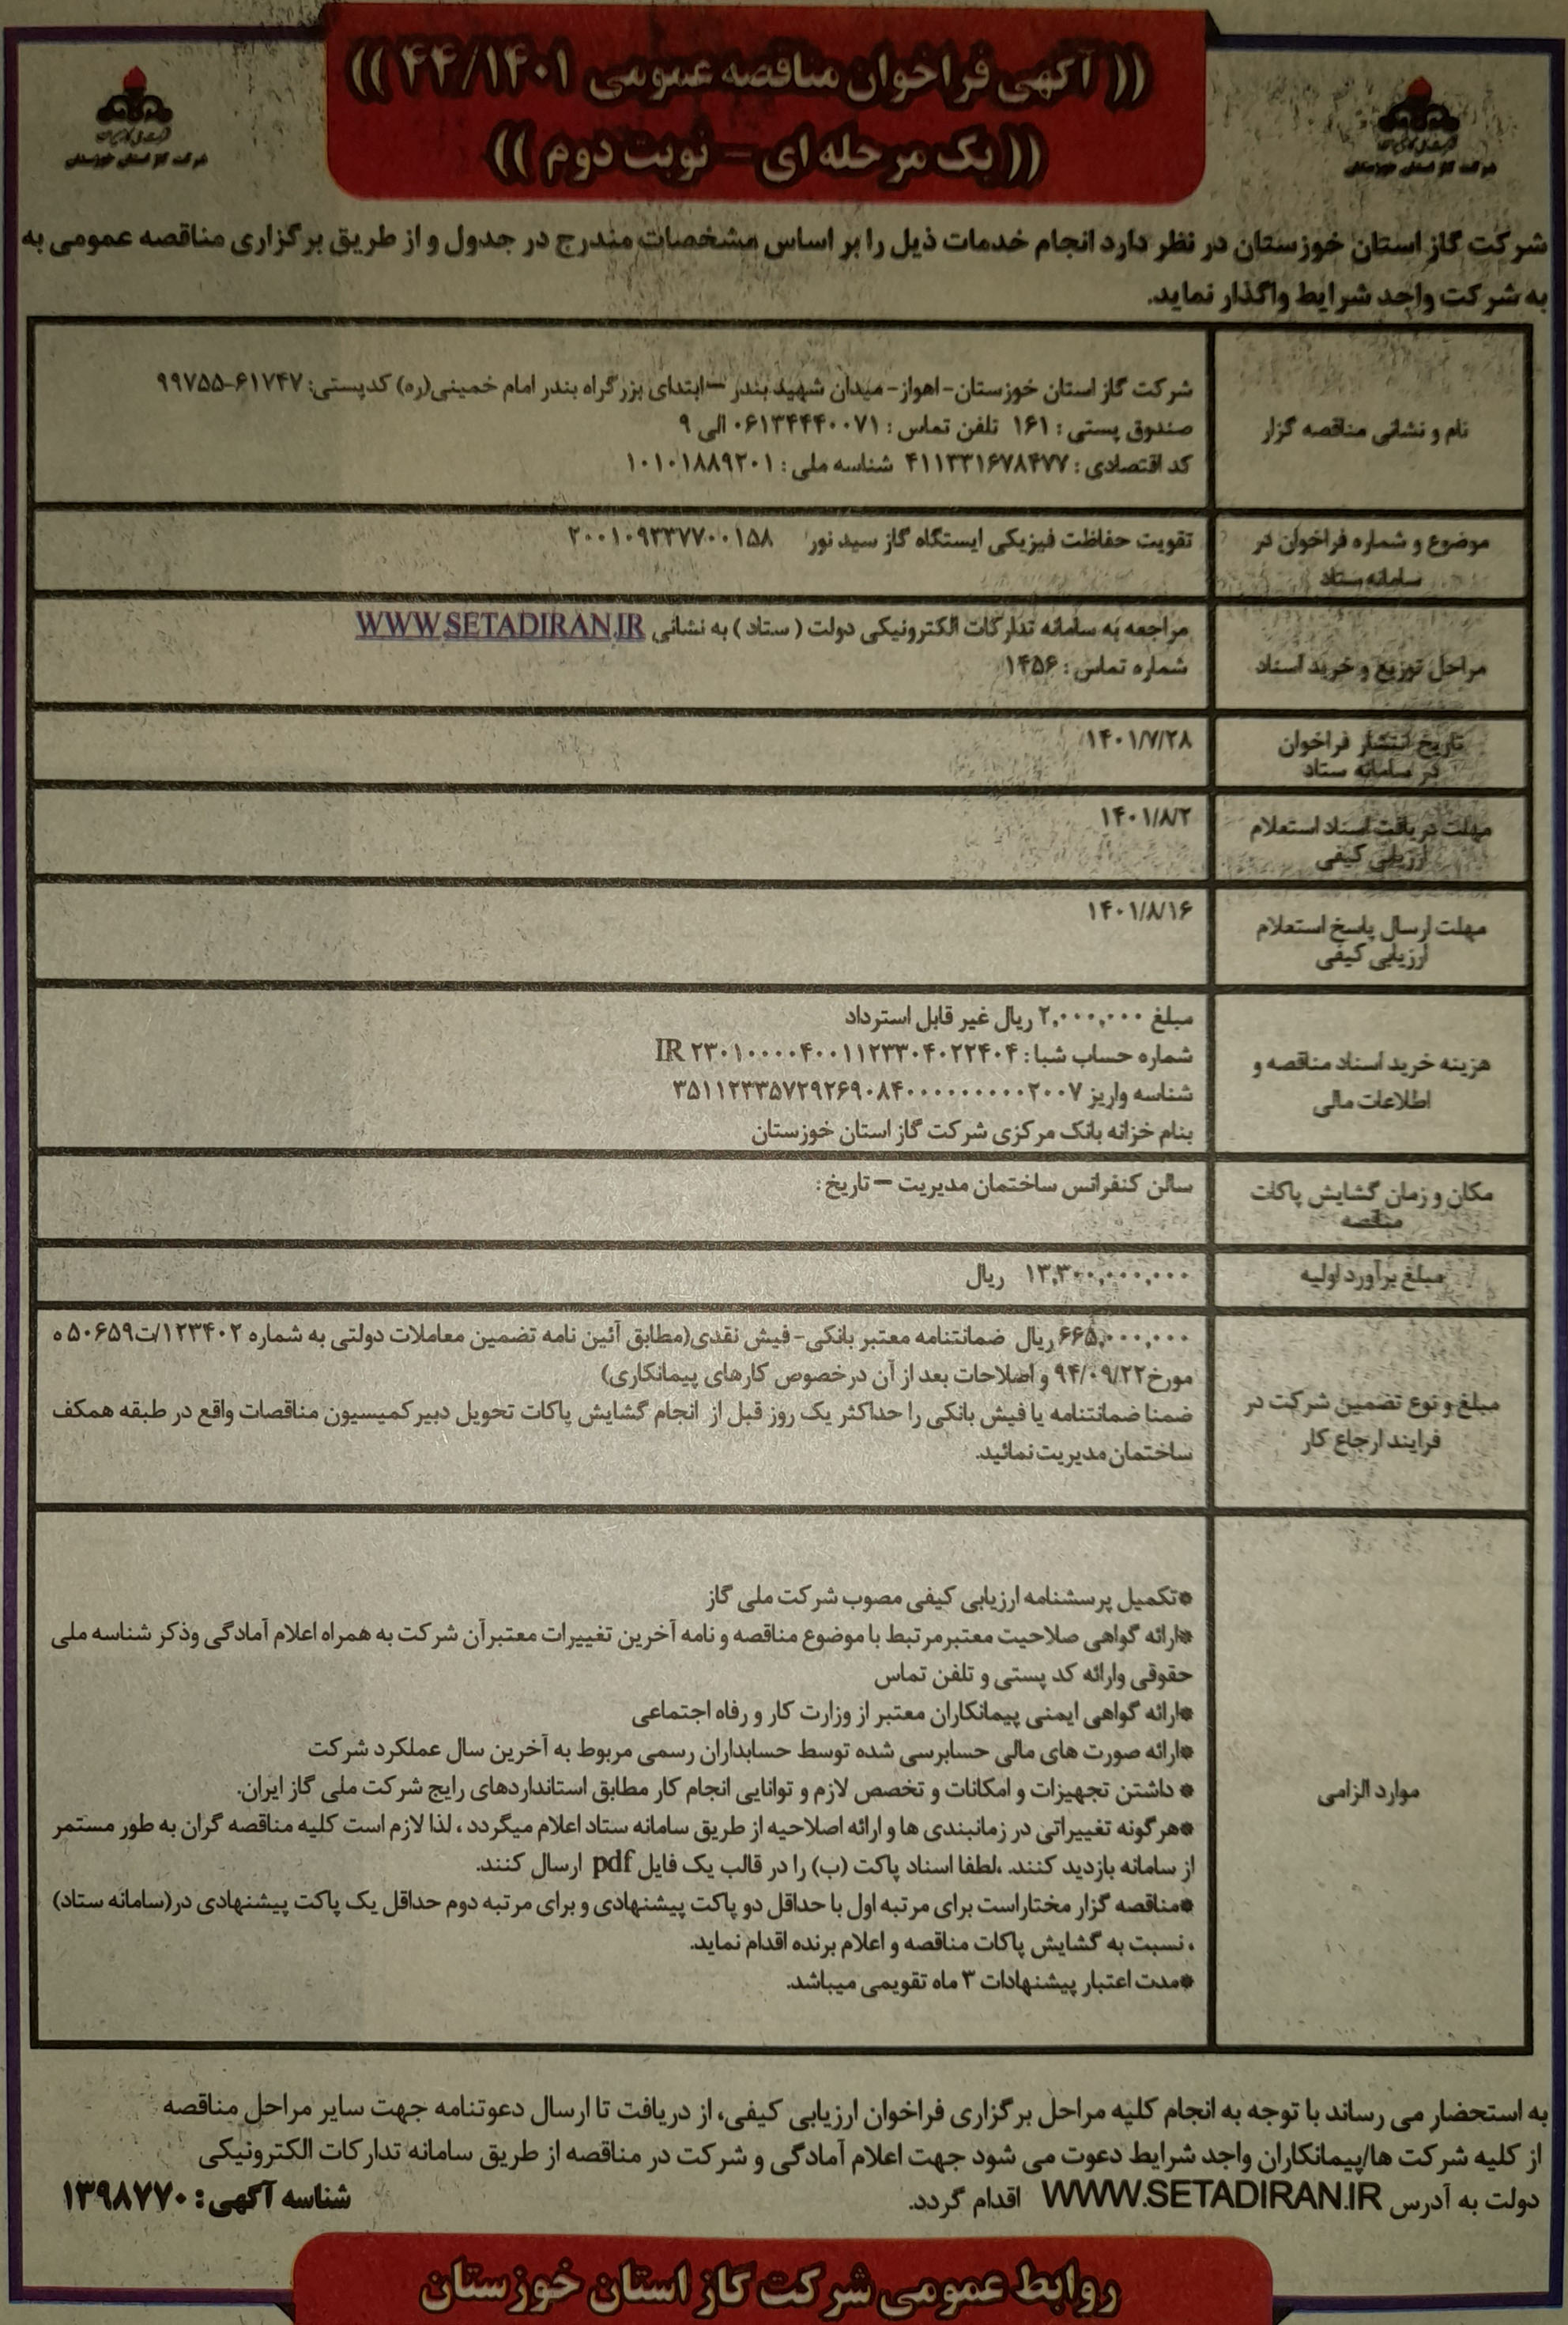 (( آگهی فراخوان مناقصه عمومی ۴۴/۱۴۰۱ ))
(( یک مرحله ای – نوبت دوم ))
شرکت گاز استان خوزستان
شرکت گاز استان خوزستان
شرکت گاز استان خوزستان در نظر دارد انجام خدمات ذیل را بر اساس مشخصات مندرج در جدول و از طریق برگزاری مناقصه عمومی به
به شرکت واجد شرایط واگذار نماید.
نام و نشانی مناقصه گزار
شرکت گاز استان خوزستان- اهواز- میدان شهید بندر –ابتدای بزرگراه بندر امام خمینی(ره) کدپستی: ۶۱۷۴۷-۹۹۷۵۵
صندوق پستی : ۱۶۱ تلفن تماس : ۰۶۱۳۴۴۴۰۰۷۱ الی ۹
کد اقتصادی : ۴۱۱۳۳۱۶۷۸۴۷۷ شناسه ملی : ۱۰۱۰۱۸۸۹۲۰۱
موضوع و شماره فراخوان در
سامانه ستاد
تقویت حفاظت فیزیکی ایستگاه گاز سید نور ۲۰۰۱۰۹۳۳۷۷۰۰۱۵۸
مراحل توزیع و خرید اسناد
مراجعه به سامانه تدارکات الکترونیکی دولت ( ستاد ) به نشانی WWW.SETADIRAN.IR
شماره تماس : ۱۴۵۶
تاریخ انتشار فراخوان
در سامانه ستاد
۱۴۰۱/۷/۲۸
مهلت دریافت اسناد استعلام
ارزیابی کیفی
۱۴۰۱/۸/۲
مهلت ارسال پاسخ استعلام
ارزیابی کیفی
۱۴۰۱/۸/۱۶
هزینه خرید اسناد مناقصه و
اطلاعات مالی
مبلغ ۲,۰۰۰,۰۰۰ ریال غیر قابل استرداد
شماره حساب شبا : IR ۲۳۰۱۰۰۰۰۴۰۰۱۱۲۳۳۰۴۰۲۲۴۰۴
شناسه واریز ۳۵۱۱۲۳۳۵۷۲۹۲۶۹۰۸۴۰۰۰۰۰۰۰۰۰۰۲۰۰۷
بنام خزانه بانک مرکزی شرکت گاز استان خوزستان
مکان و زمان گشایش پاکات
مناقصه
سالن کنفرانس ساختمان مدیریت – تاریخ :
مبلغ برآورد اولیه
۱۳,۳۰۰,۰۰۰,۰۰۰ ریال
مبلغ و نوع تضمین شرکت در
فرایند ارجاع کار
۶۶۵,۰۰۰,۰۰۰ ریال ضمانتنامه معتبر بانکی- فیش نقدی(مطابق آئین نامه تضمین معاملات دولتی به شماره ۱۲۳۴۰۲/ت۵۰۶۵۹ ه
مورخ۹۴/۰۹/۲۲ و اصلاحات بعد از آن درخصوص کارهای پیمانکاری)
ضمنا ضمانتنامه یا فیش بانکی را حداکثر یک روز قبل از انجام گشایش پاکات تحویل دبیرکمیسیون مناقصات واقع در طبقه همکف
ساختمان مدیریت نمائید.
موارد الزامی
*تکمیل پرسشنامه ارزیابی کیفی مصوب شرکت ملی گاز
*ارائه گواهی صلاحیت معتبرمرتبط با موضوع مناقصه و نامه آخرین تغییرات معتبرآن شرکت به همراه اعلام آمادگی وذکر شناسه ملی
حقوقی وارائه کد پستی و تلفن تماس
*ارائه گواهی ایمنی پیمانکاران معتبر از وزارت کار و رفاه اجتماعی
*ارائه صورت های مالی حسابرسی شده توسط حسابداران رسمی مربوط به آخرین سال عملکرد شرکت
* داشتن تجهیزات و امکانات و تخصص لازم و توانایی انجام کار مطابق استانداردهای رایج شرکت ملی گاز ایران.
*هرگونه تغییراتی در زمانبندی ها و ارائه اصلاحیه از طریق سامانه ستاد اعلام میگردد ، لذا لازم است کلیه مناقصه گران به طور مستمر
از سامانه بازدید کنند. ،لطفا اسناد پاکت (ب) را در قالب یک فایل pdf ارسال کنند.
*مناقصه گزار مختاراست برای مرتبه اول با حداقل دو پاکت پیشنهادی و برای مرتبه دوم حداقل یک پاکت پیشنهادی در(سامانه ستاد)
، نسبت به گشایش پاکات مناقصه و اعلام برنده اقدام نماید.
*مدت اعتبار پیشنهادات ۳ ماه تقویمی میباشد.
به استحضار می رساند با توجه به انجام کلیه مراحل برگزاری فراخوان ارزیابی کیفی، از دریافت تا ارسال دعوتنامه جهت سایر مراحل مناقصه
از کلیه شرکت ها/پیمانکاران واجد شرایط دعوت می شود جهت اعلام آمادگی و شرکت در مناقصه از طریق سامانه تدارکات الکترونیکی
دولت به آدرس WWW.SETADIRAN.IR اقدام گردد.
شناسه آگهی : ۱۳۹۸۷۷۰
روابط عمومی شرکت گاز استان خوزستان